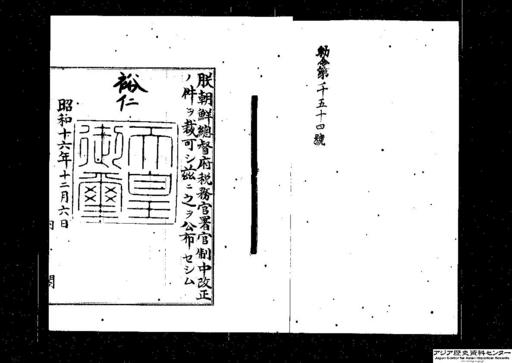 勅令第千五十四號
朕朝鮮總督府税務官署官制中改正
ノ件ヲ裁可シ茲ニ之ヲ公布セシム
裕仁
天皇御璽
昭和十六年十二月六日
内閣
アジア歴史資料センター
Japan Center for Asian Historical Records